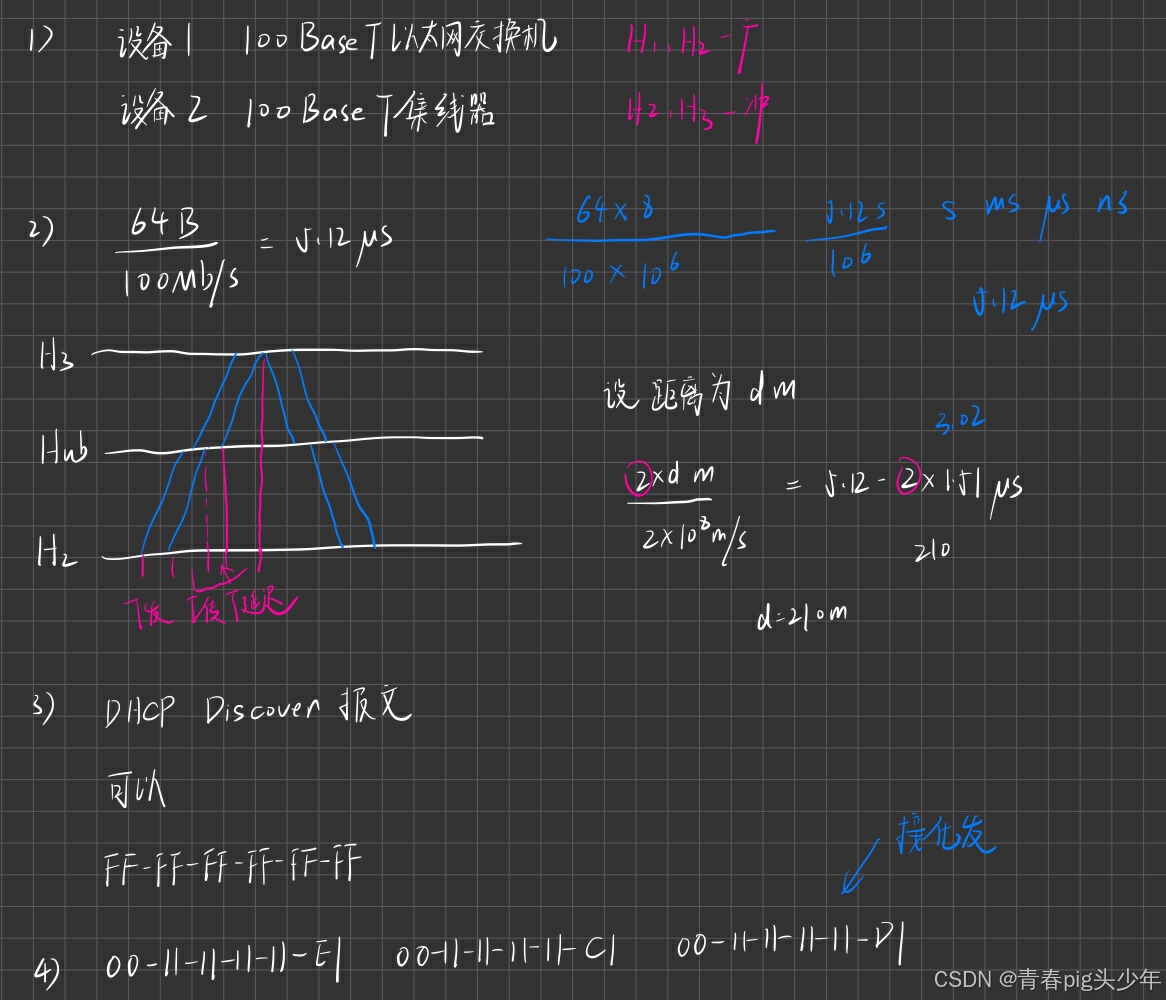 1) 设备1 100 Base T以太网交换机 H1、H2-T
设备2 100 Base T集线器 H2、H3-冲
2) 64B / 100Mb/s = 5.12 μs
64×8 / 100×10⁶ 5.12s / 10⁶ s ms μs ns
5.12 μs
H3
设距离为 d m
3.02
Hub
2×d m / 2×10⁸m/s = 5.12-2×1.51 μs
210
H2
T发 T传 T延迟
d=210m
3) DHCP Discover 报文
可以
接化发
FF-FF-FF-FF-FF-FF
4) 00-11-11-11-11-E1 00-11-11-11-11-C1 00-11-11-11-11-D1
CSDN @青春pig头少年